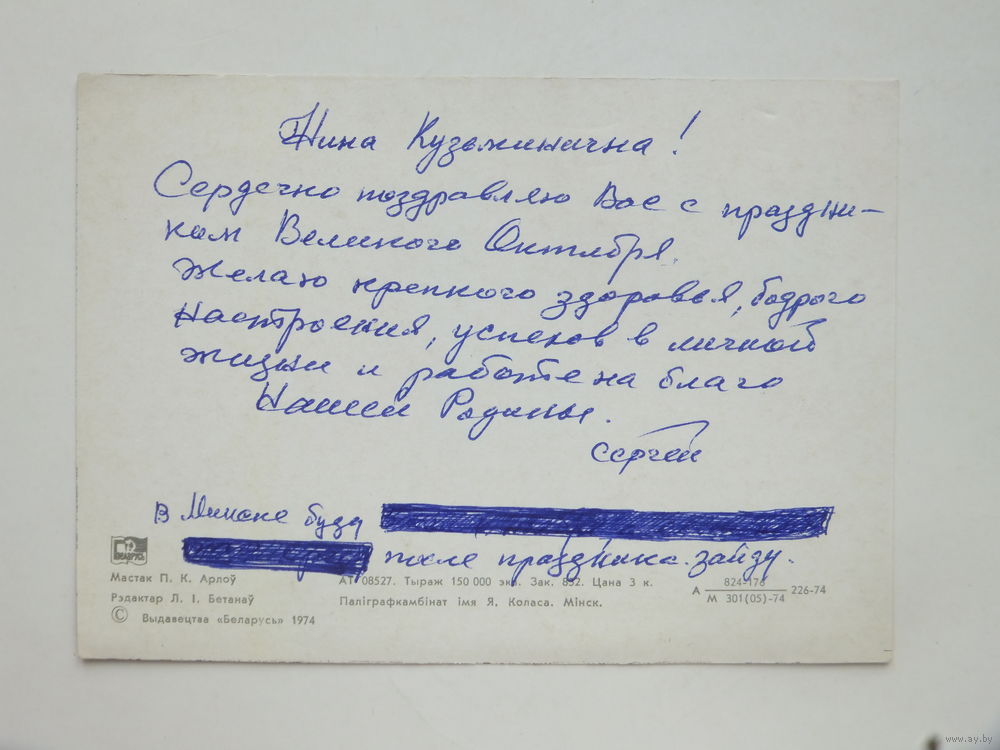 Нина Кузьминична!
Сердечно поздравляю Вас с праздни-
ком Великого Октября.
Желаю крепкого здоровья, бодрого
настроения, успехов в личной
жизни и работе на благо
Нашей Родины.
Сергей
В Минске буду
после праздника. зайду.
БЕЛАРУСЬ
Мастак П. К. Арлоў
Рэдактар Л. І. Бетанаў
© Выдавецтва «Беларусь» 1974
АТ 08527. Тыраж 150 000 экз. Зак. 832. Цана 3 к.
Паліграфкамбінат імя Я. Коласа. Мінск.
А 824-178
М 301(05)-74 226-74
www.ay.by